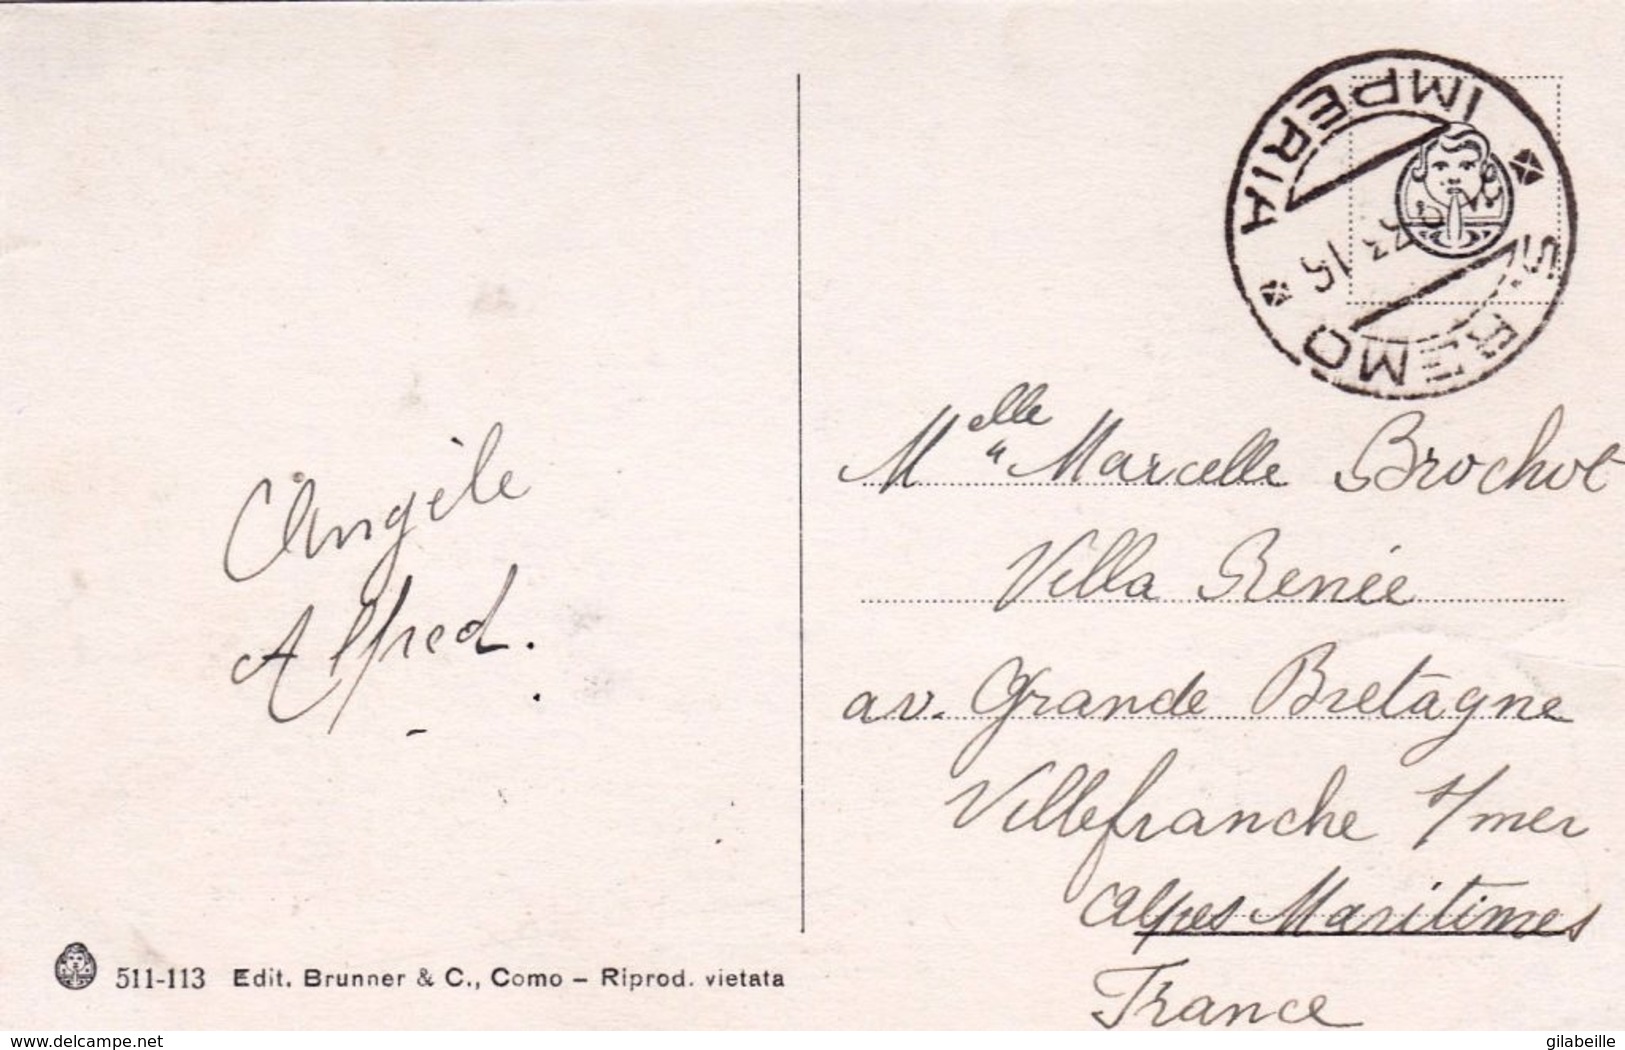 IMPERIA
S. REMO
Angèle
Alfred.
Melle Marcelle Brochot
Villa Renée
av. Grande Bretagne
Villefranche s/mer
Alpes Maritimes
France
511-113 Edit. Brunner & C., Como – Riprod. vietata
www.delcampe.net
gilabeille